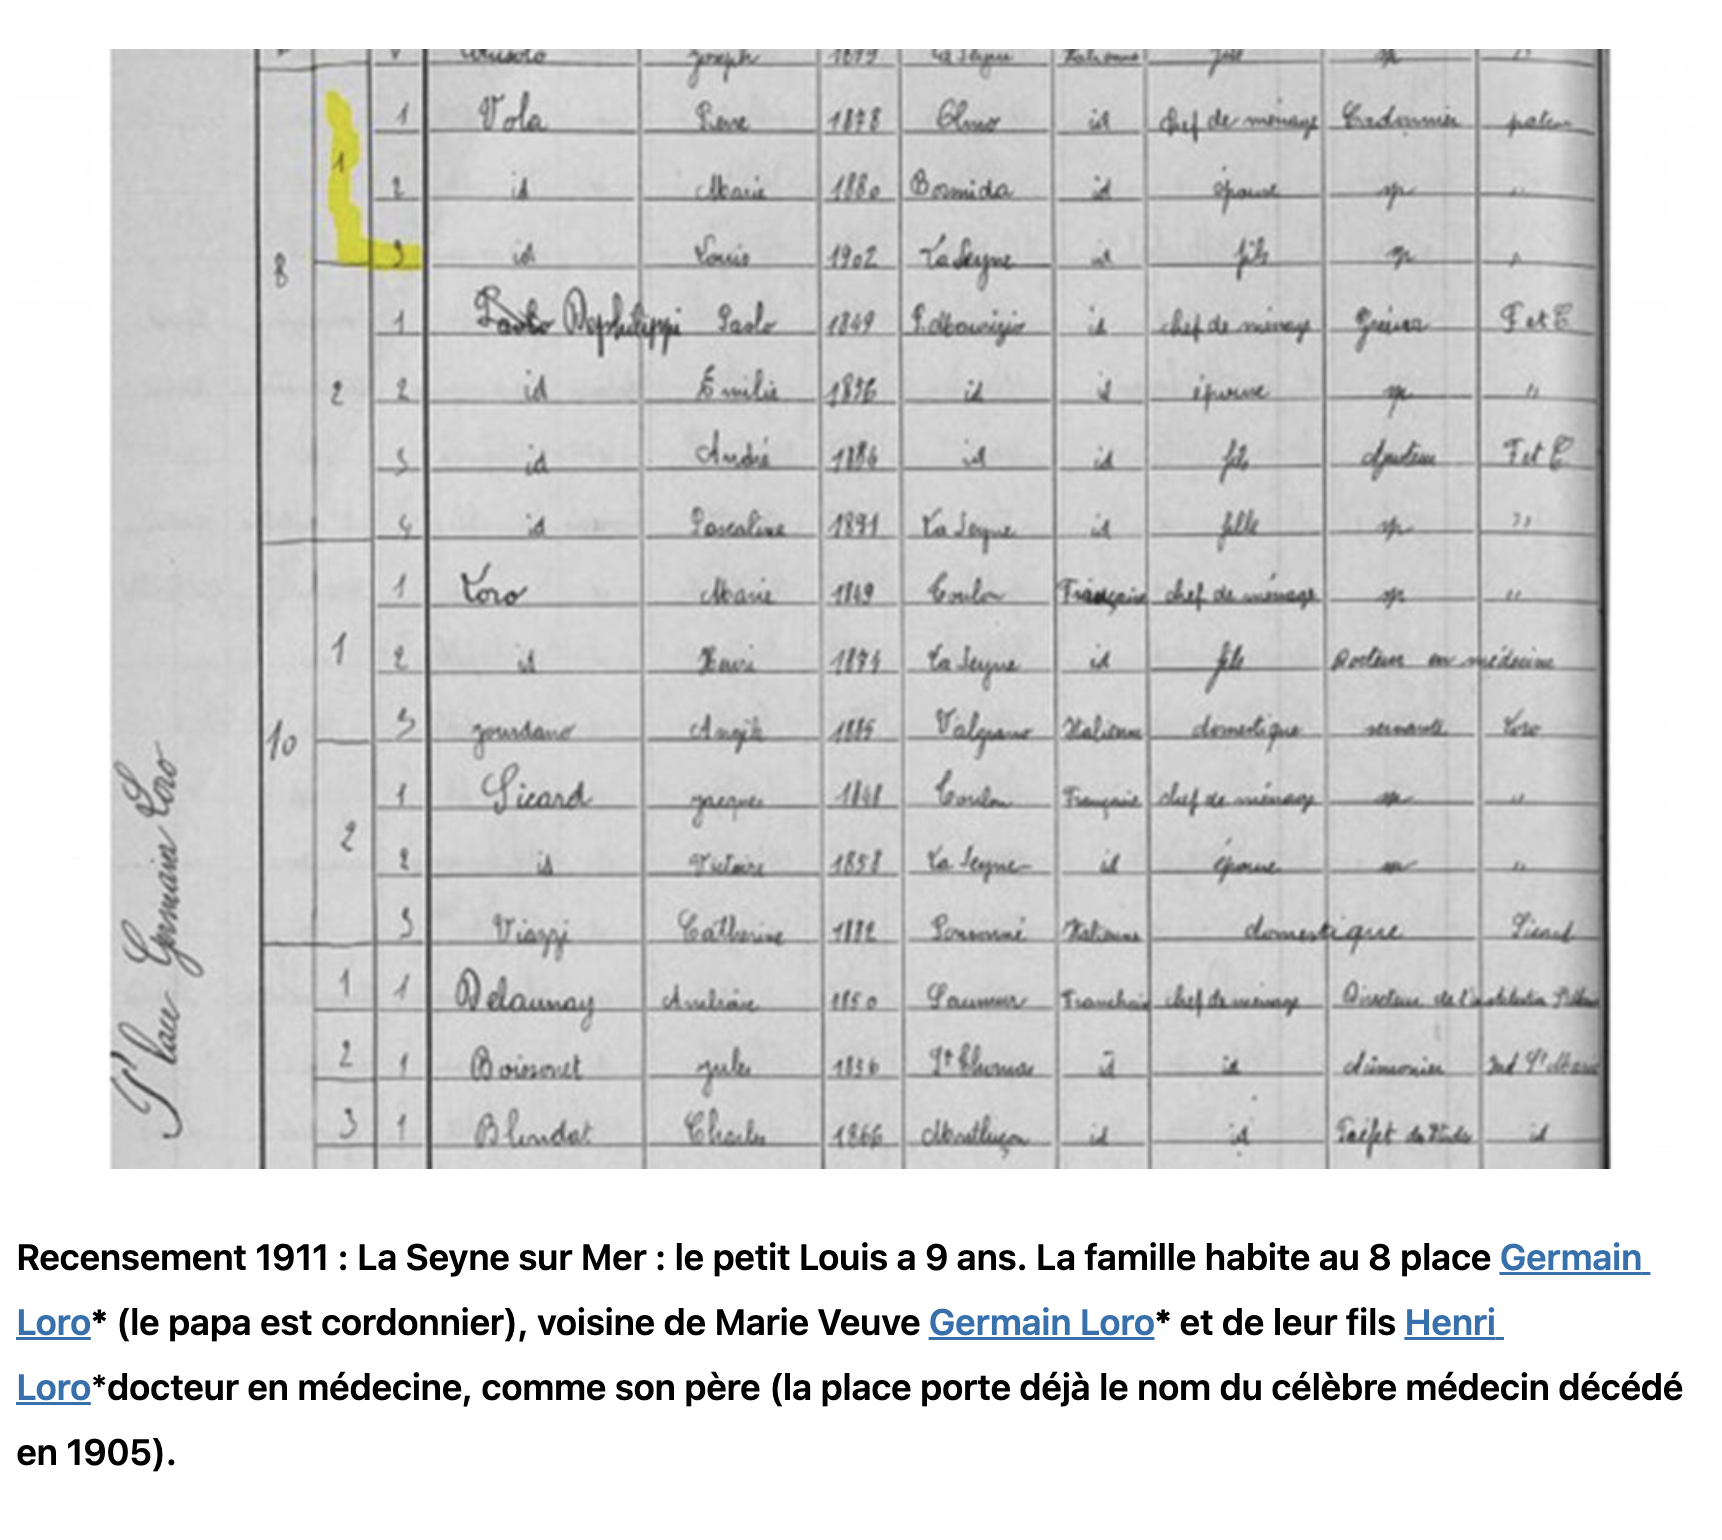 Joseph 1879 La Seyne Italienne fils sp "
1 Vola Pierre 1878 Olmo id chef de ménage Cordonnier patron
1 2 id Marie 1880 Bormida id épouse sp "
3 id Louis 1902 La Seyne id fils sp "
8
1 Paolo Dephilippi Paolo 1849 P. Maurizio id chef de ménage F et C
2 2 id Émilie 1856 id id épouse sp "
3 id André 1886 id id fils ajusteur F et C
4 id Pascaline 1891 La Seyne id fille sp "
1 Loro Marie 1849 Toulon Française chef de ménage sp "
1 2 id Henri 1874 La Seyne id fils Docteur en médecine
10 3 Jourdano Angèle 1885 Valgrano Italienne domestique servante Loro
1 Sicard Jacques 1848 Toulon Française chef de ménage sp "
2 2 id Victoire 1858 La Seyne id épouse sp "
3 Viazzi Catherine 1882 Italienne domestique Sicard
1 1 Delaunay Ambroise 1850 Saumur chef de ménage Directeur de l'institution
2 1 Boissonet Jules 1856 St Thomas id id Aumonier Ind Ste Marie
3 1 Blondat Charles 1866 Montluçon id id Préfet des Etudes id
Place Germain Loro
Recensement 1911 : La Seyne sur Mer : le petit Louis a 9 ans. La famille habite au 8 place Germain
Loro* (le papa est cordonnier), voisine de Marie Veuve Germain Loro* et de leur fils Henri
Loro*docteur en médecine, comme son père (la place porte déjà le nom du célèbre médecin décédé
en 1905).